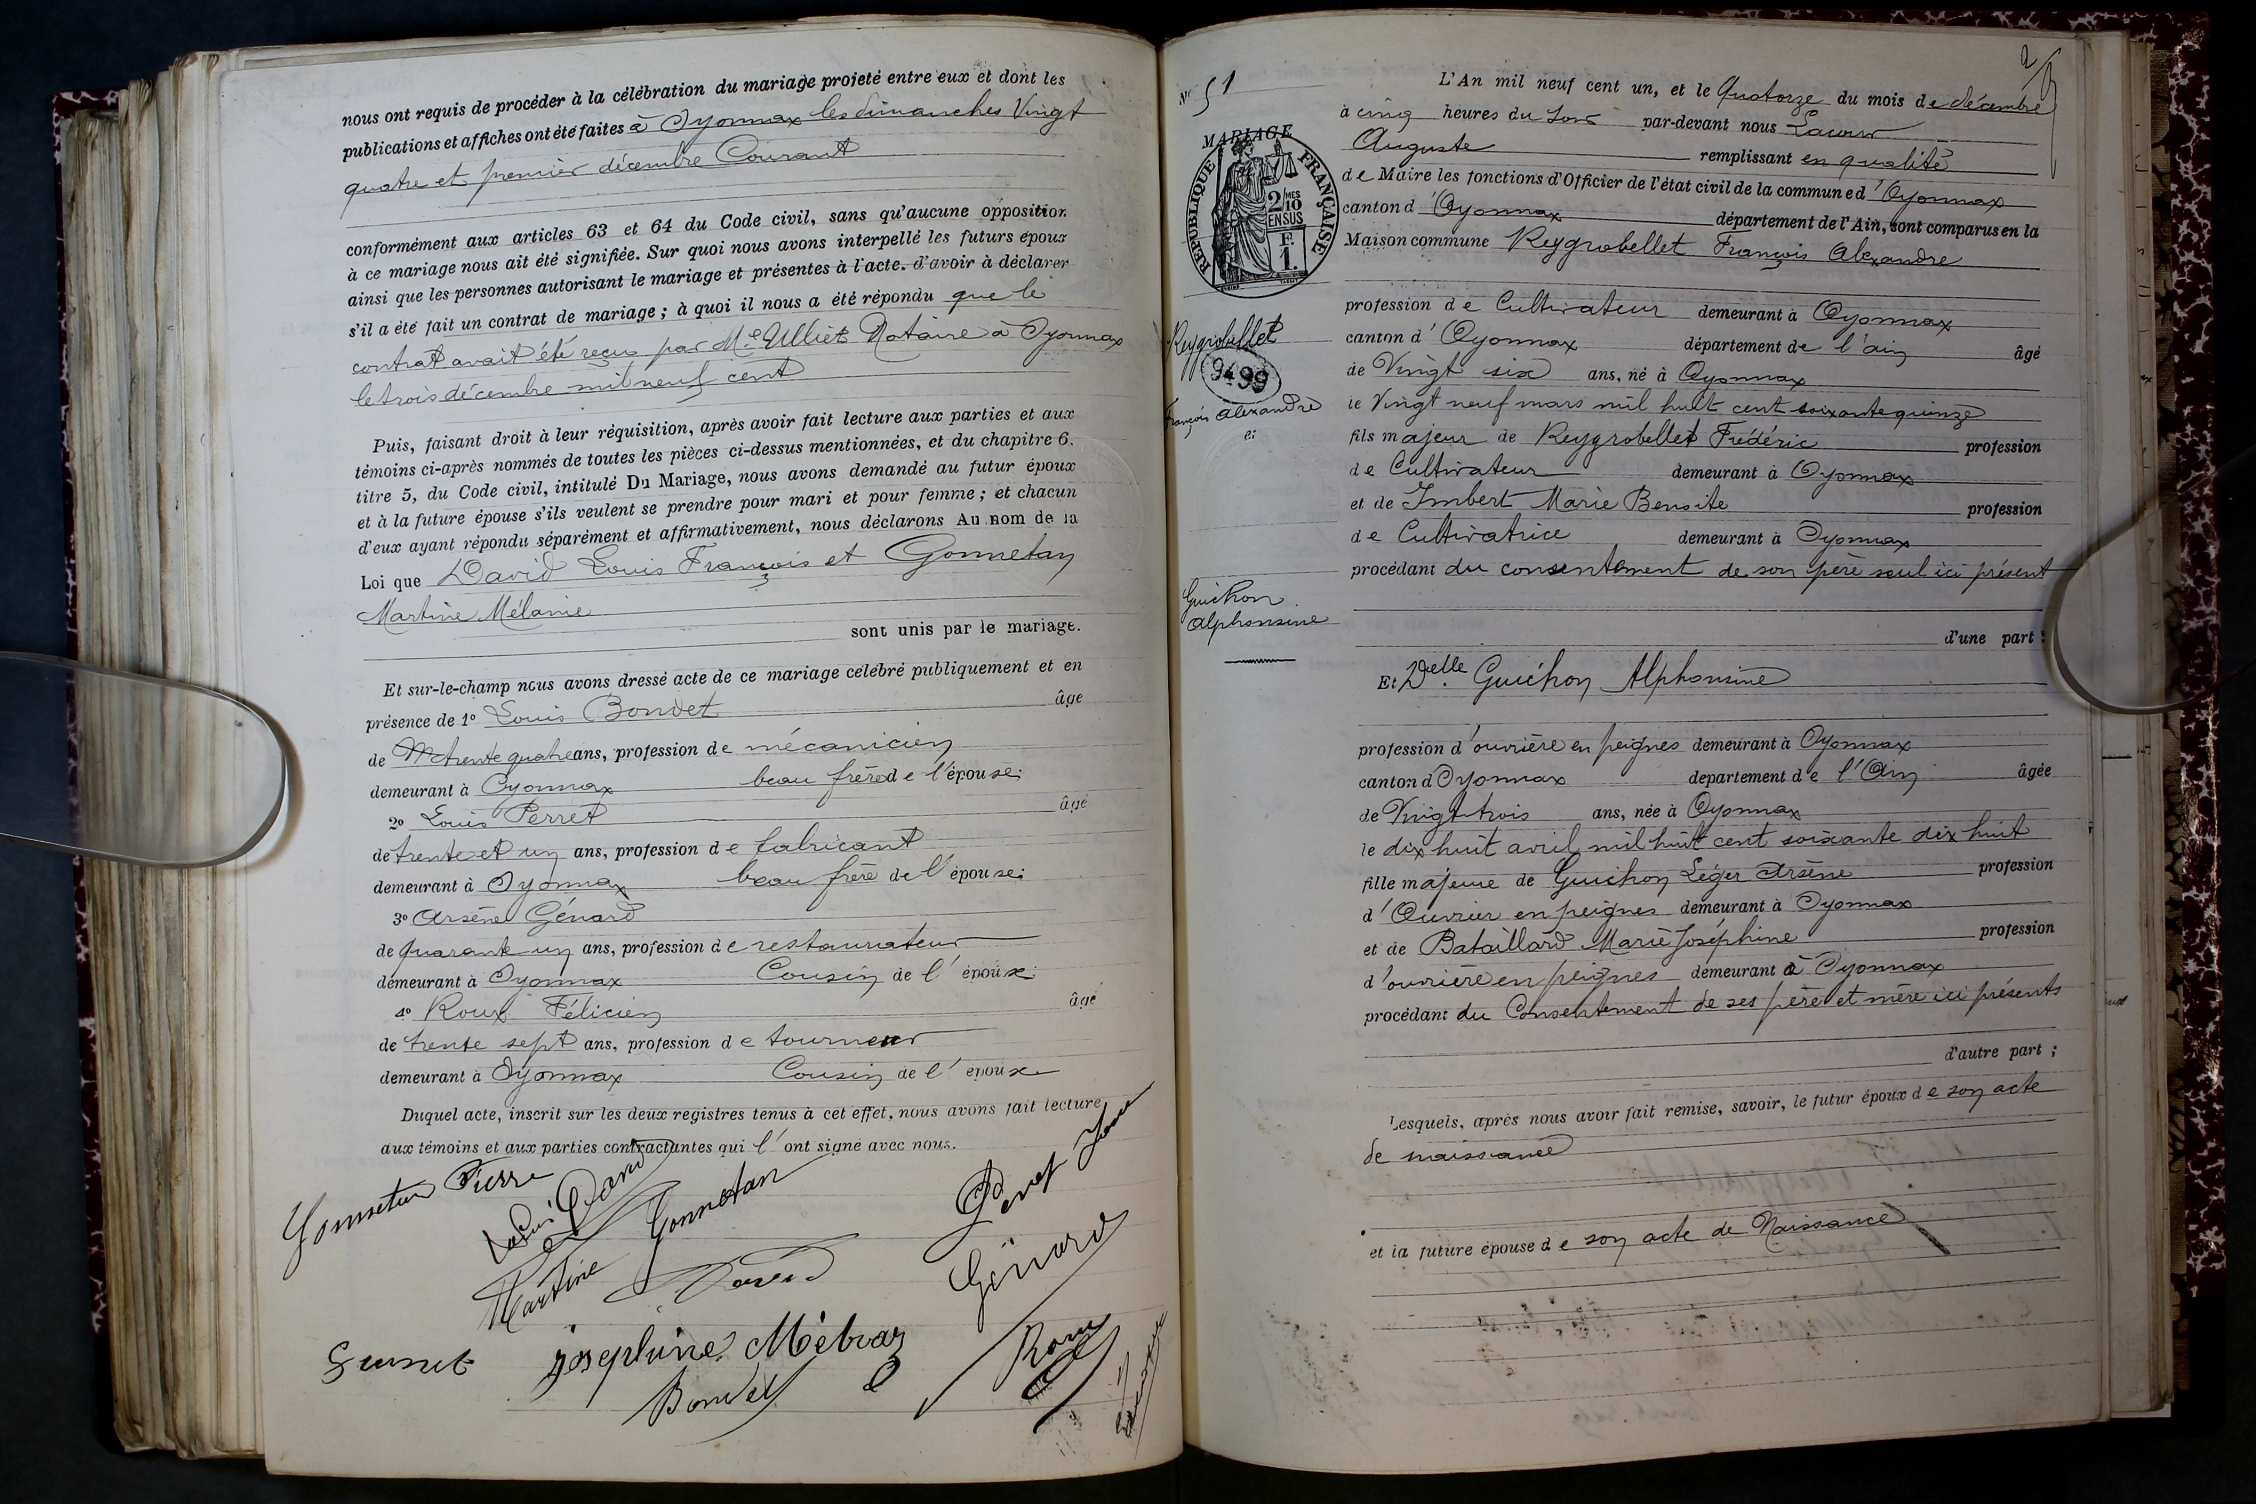 nous ont requis de procéder à la célébration du mariage projeté entre eux et dont les
publications et affiches ont été faites à Oyonnax les dimanches Vingt
quatre et premier décembre Courant
conformément aux articles 63 et 64 du Code civil, sans qu'aucune opposition
à ce mariage nous ait été signifiée. Sur quoi nous avons interpellé les futurs époux
ainsi que les personnes autorisant le mariage et présentes à l'acte, d'avoir à déclarer
s'il a été fait un contrat de mariage ; à quoi il nous a été répondu que le
contrat avait été reçu par Me Ulliet Notaire à Oyonnax
le trois décembre mil neuf cent
Puis, faisant droit à leur réquisition, après avoir fait lecture aux parties et aux
témoins ci-après nommés de toutes les pièces ci-dessus mentionnées, et du chapitre 6,
titre 5, du Code civil, intitulé Du Mariage, nous avons demandé au futur époux
et à la future épouse s'ils veulent se prendre pour mari et pour femme ; et chacun
d'eux ayant répondu séparément et affirmativement, nous déclarons Au nom de la
Loi que David Louis François et Gonnetan
Martine Mélanie
sont unis par le mariage.
Et sur-le-champ nous avons dressé acte de ce mariage célébré publiquement et en
présence de 1° Louis Bondet âgé
de trente quatre ans, profession de mécanicien
demeurant à Oyonnax beau frère de l'épouse;
2° Louis Perret âgé
de trente et un ans, profession de fabricant
demeurant à Oyonnax beau frère de l'épouse;
3° Arsène Génard
de quarante un ans, profession de restaurateur
demeurant à Oyonnax Cousin de l'époux;
4° Roux Félicien âgé
de trente sept ans, profession de tourneur
demeurant à Oyonnax Cousin de l'époux
Duquel acte, inscrit sur les deux registres tenus à cet effet, nous avons fait lecture
aux témoins et aux parties contractantes qui l'ont signé avec nous.
Pierre
Louis David
Martine Gonnetan
David
Perret
Génard
Joséphine
Bondet
Roux
2
N° 51
MARIAGE
REPUBLIQUE FRANÇAISE
2/10MES
EN SUS
F.
1.
Reygrobellet
9499
François Alexandre
et
Guichon
Alphonsine
L'An mil neuf cent un, et le Quatorze du mois de décembre
à cinq heures du soir par-devant nous Lacour
Auguste remplissant en qualité
de Maire les fonctions d'Officier de l'état civil de la commune d'Oyonnax
canton d'Oyonnax département de l'Ain, sont comparus en la
Maison commune Reygrobellet François Alexandre
profession de Cultivateur demeurant à Oyonnax
canton d'Oyonnax département de l'ain âgé
de Vingt six ans, né à Oyonnax
le Vingt neuf mars mil huit cent soixante quinze
fils majeur de Reygrobellet Frédéric profession
de Cultivateur demeurant à Oyonnax
et de Imbert Marie Benoite profession
de Cultivatrice demeurant à Oyonnax
procédant du consentement de son père seul ici présent
d'une part ;
Et Delle Guichon Alphonsine
profession d'ouvrière en peignes demeurant à Oyonnax
canton d'Oyonnax département de l'Ain âgée
de Vingt trois ans, née à Oyonnax
le dix huit avril mil huit cent soixante dix huit
fille majeure de Guichon Léger Arsène profession
d'Ouvrier en peignes demeurant à Oyonnax
et de Bataillard Marie Joséphine profession
d'ouvrière en peignes demeurant à Oyonnax
procédant du Consentement de ses père et mère ici présents
d'autre part ;
Lesquels, après nous avoir fait remise, savoir, le futur époux de son acte
de naissance
et la future épouse de son acte de Naissance